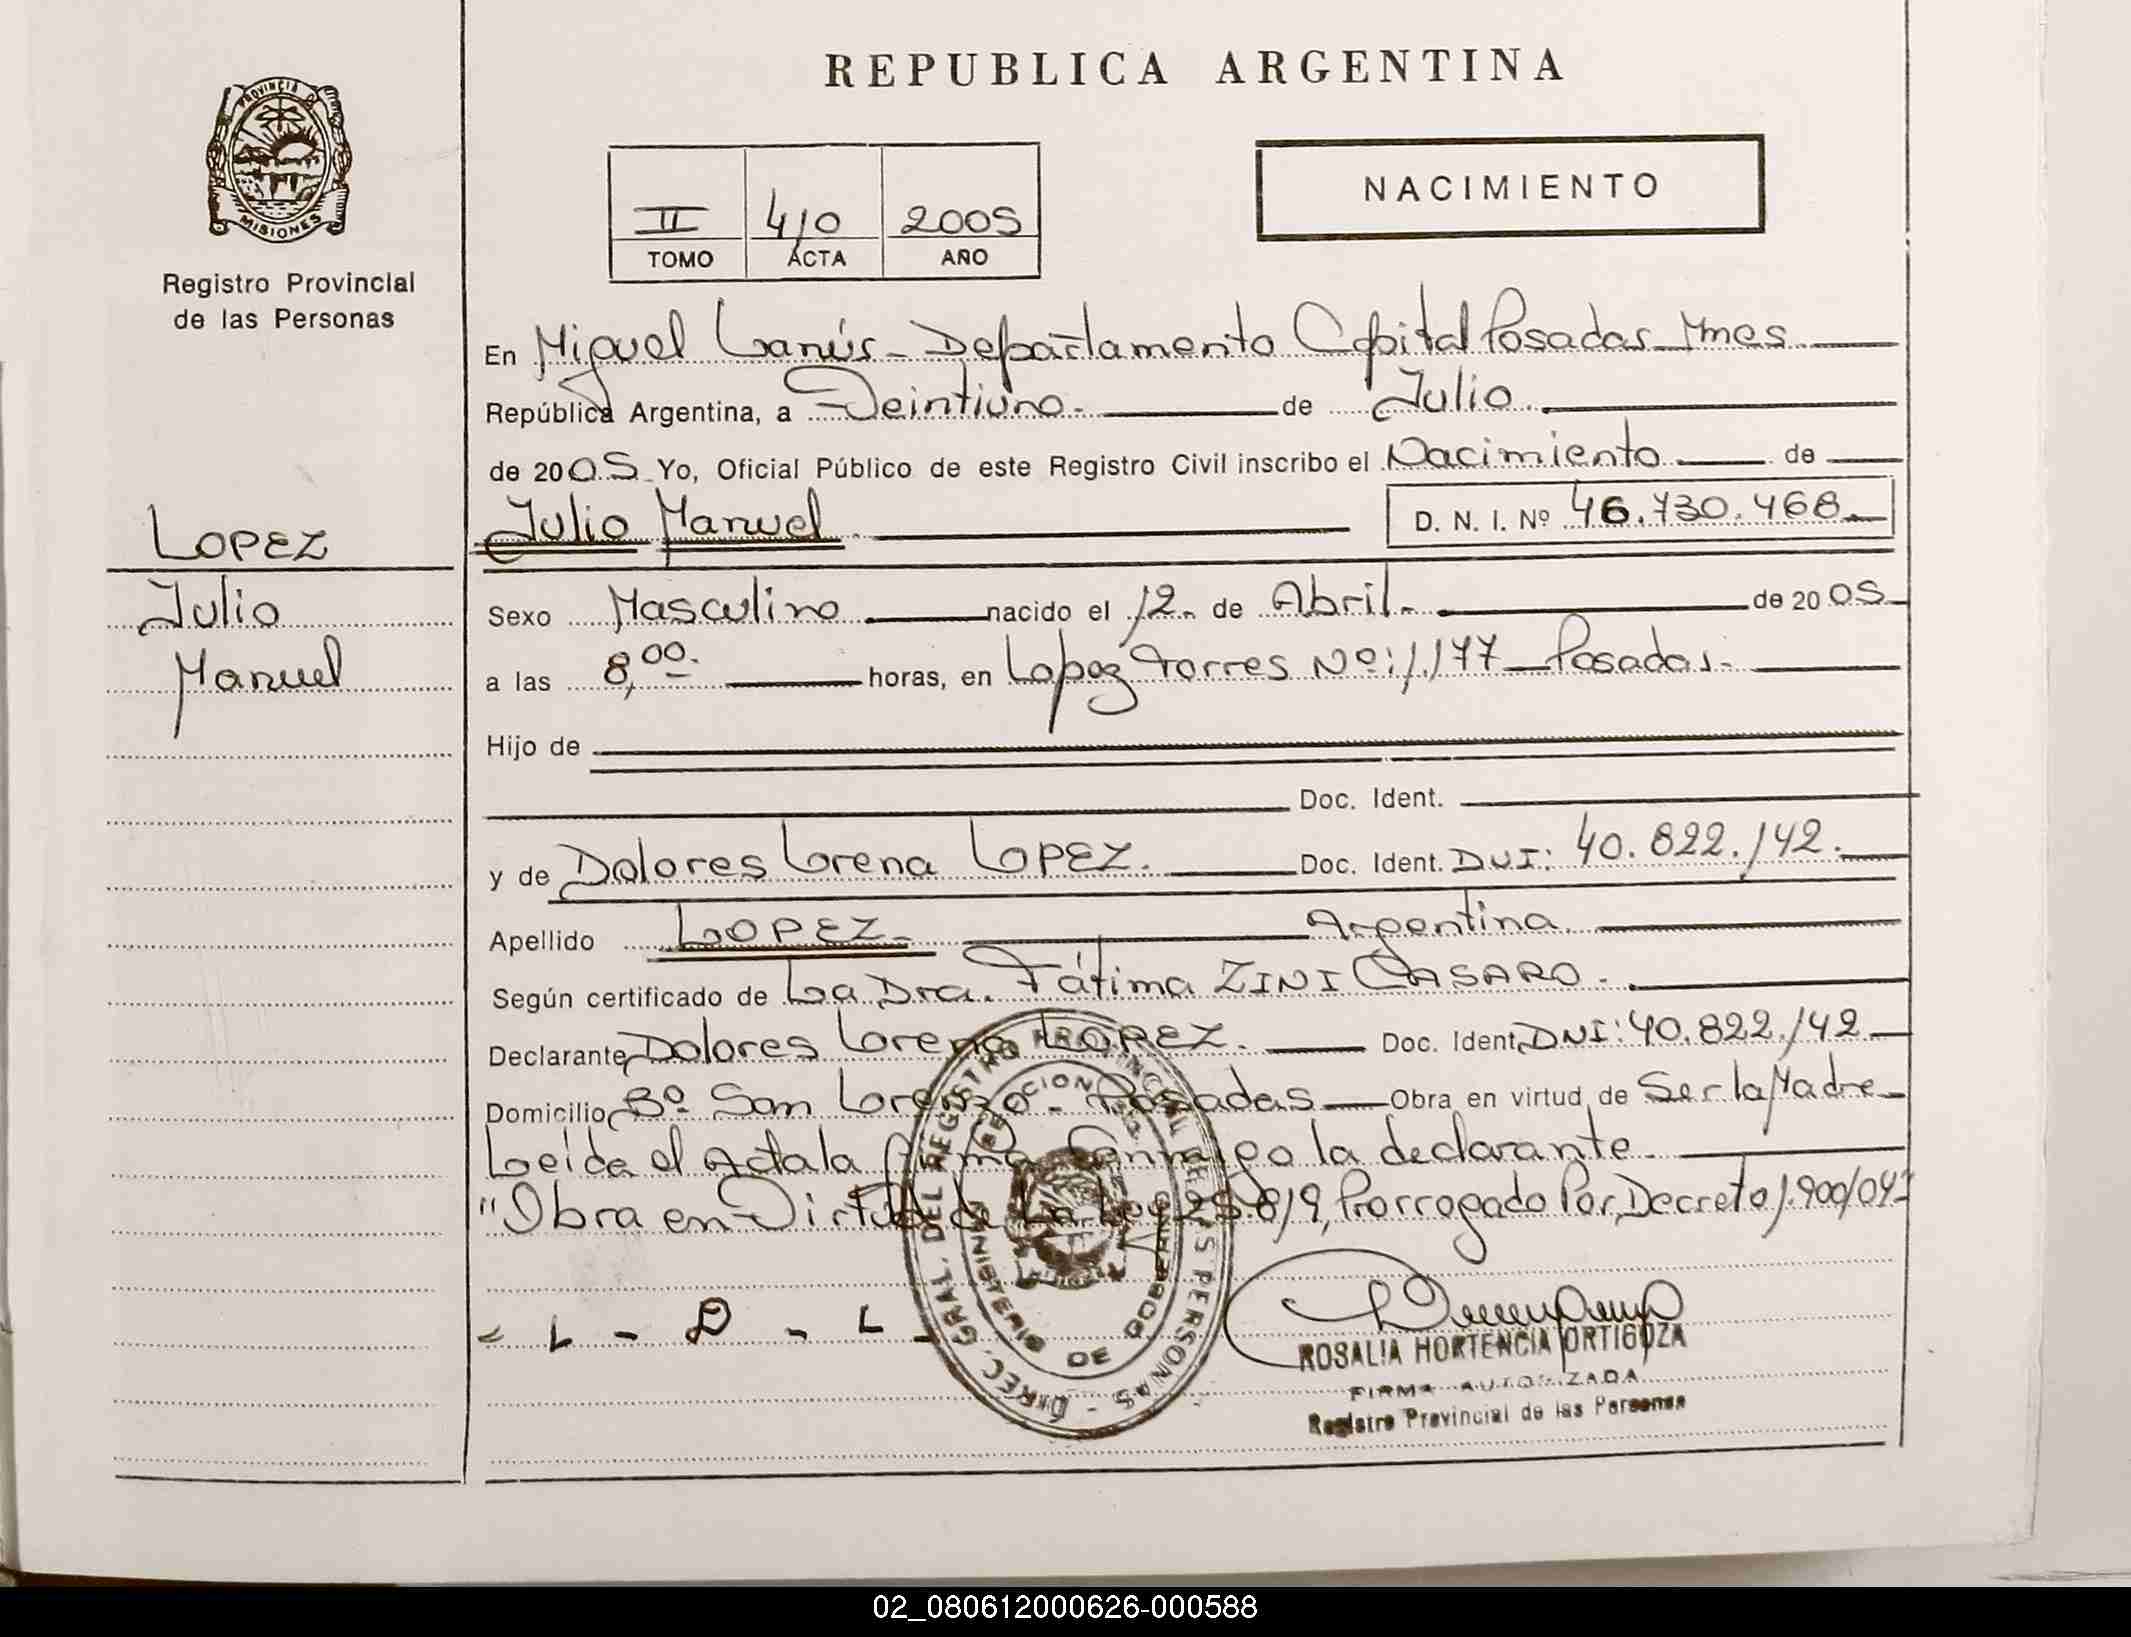 REPUBLICA ARGENTINA
PROVINCIA DE
MISIONES
Registro Provincial
de las Personas
II 410 2005
TOMO ACTA AÑO
NACIMIENTO
En Miguel Lanús - Departamento Capital Posadas Mnes
República Argentina, a Veintiuno. de Julio.
de 2005 Yo, Oficial Público de este Registro Civil inscribo el Nacimiento de
Julio Manuel D. N. I. Nº 46.730.468.
LOPEZ
Julio
Manuel
Sexo Masculino nacido el 12. de Abril. de 2005
a las 8,00. horas, en Lopez Torres Nº: 1.177 Posadas.
Hijo de
Doc. Ident.
y de Dolores Lorena LOPEZ. Doc. Ident. DNI: 40.822.142.
Apellido LOPEZ. Argentina.
Según certificado de La Dra. Fátima ZINI CASARO.
Declarante Dolores Lorena LOPEZ. Doc. Ident. DNI: 40.822.142
Domicilio Bº San Lorenzo - Posadas Obra en virtud de Ser la Madre
Leida el Acta la firma Conmigo la declarante.
"Obra en Virtud de La Ley 25.819, Prorrogado Por Decreto 1.900/04"
- L - D - L -
DIREC. GRAL. DEL REGISTRO PROVINCIAL DE LAS PERSONAS -
MINISTERIO DE GOBIERNO
ROSALIA HORTENCIA ORTIGOZA
FIRMA AUTORIZADA
Registro Provincial de las Personas
02_080612000626-000588